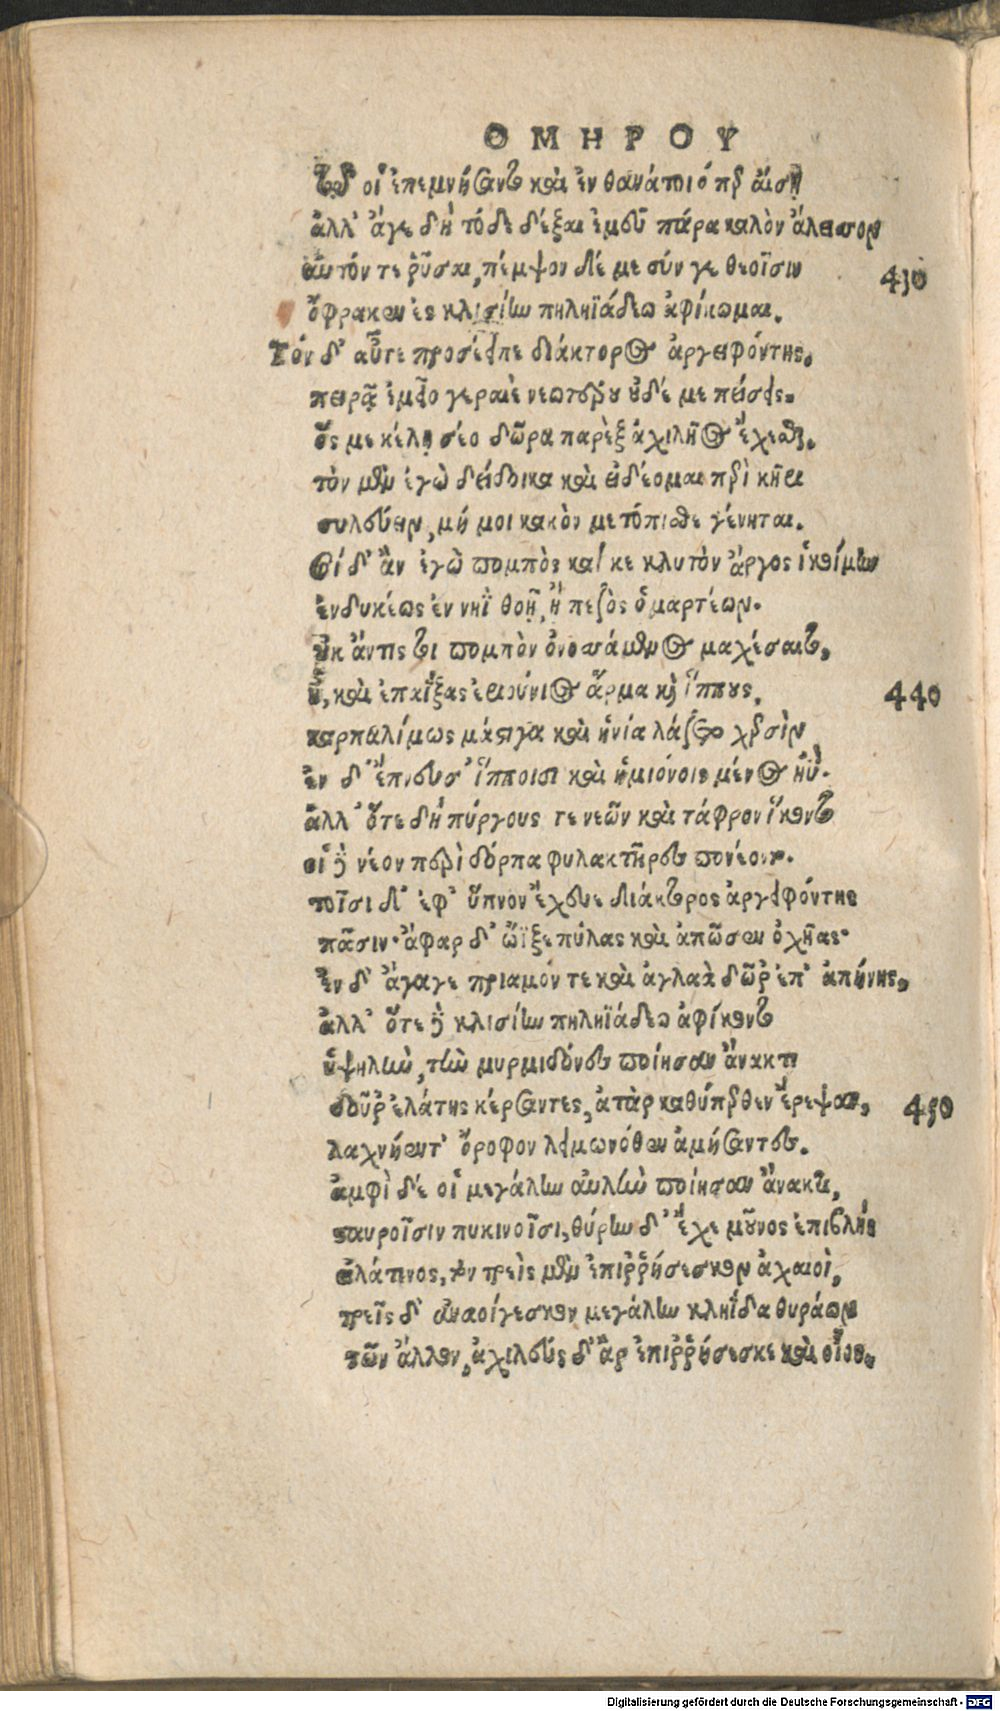 ΟΜΗΡΟΥ
τῷ οἱ ἐπεμνήσαντο καὶ ἐν θανάτοιό περ αἴσῃ
ἀλλ' ἄγε δὴ τόδε δέξαι ἐμεῦ πάρα καλὸν ἄλεισον
αὐτόν τε ῥῦσαι, πέμψον δέ με σύν γε θεοῖσιν 430
ὄφρα κεν ἐς κλισίην πηληϊάδεω ἀφίκωμαι.
Τόν δ' αὖτε προσέειπε διάκτορος ἀργειφόντης.
πειρᾷ ἐμεῖο γεραιὲ νεωτέρου οὐδέ με πείσεις.
ὅς με κέλῃ σέο δῶρα παρὲξ ἀχιλῆος ἔχεσθαι.
τὸν μὲν ἐγὼ δείδοικα καὶ αἰδέομαι περὶ κῆρι
συλεύειν, μή μοι κακὸν μετόπισθε γένηται.
Σοί δ' ἂν ἐγὼ πομπὸς καί κε κλυτὸν ἄργος ἱκοίμην
ἐνδυκέως ἐν νηῒ θοῇ, ἢ πεζὸς ὁμαρτέων.
οὐκ ἄν τίς τοι πομπὸν ὀνοσσάμενος μαχέσαιτο,
ἦ, καὶ ἐπαΐξας ἐριούνιος ἅρμα καὶ ἵππους, 440
καρπαλίμως μάστιγα καὶ ἡνία λάζετο χερσὶν
ἐν δ' ἔπνευσ' ἵπποισι καὶ ἡμιόνοις μένος ἠΰ.
ἀλλ' ὅτε δὴ πύργους τε νεῶν καὶ τάφρον ἵκοντο
οἱ δὲ νέον περὶ δόρπα φυλακτῆρες πονέοντο.
τοῖσι δ' ἐφ' ὕπνον ἔχευε διάκτορος ἀργειφόντης
πᾶσιν· ἄφαρ δ' ὤϊξε πύλας καὶ ἀπῶσεν ὀχῆας·
ἐν δ' ἄγαγε πριαμόν τε καὶ ἀγλαὰ δῶρ' ἐπ' ἀπήνης,
ἀλλ' ὅτε δὴ κλισίην πηληϊάδεω ἀφίκοντο
ὑψηλὴν, τὴν μυρμιδόνες ποίησαν ἄνακτι
δοῦρ' ἐλάτης κέρσαντες, ἀτὰρ καθύπερθεν ἔρεψαν, 450
λαχνήεντ' ὄροφον λειμωνόθεν ἀμήσαντες.
ἀμφὶ δέ οἱ μεγάλην αὐλὴν ποίησαν ἄνακτι,
σταυροῖσιν πυκινοῖσι, θύρην δ' ἔχε μοῦνος ἐπιβλὴς
εἰλάτινος, τὸν τρεῖς μὲν ἐπιῤῥήσεσκον ἀχαιοὶ,
τρεῖς δ' ἀναοίγεσκον μεγάλην κληΐδα θυράων
τῶν ἄλλων, ἀχιλεὺς δ' ἄρ ἐπιῤῥήσεσκε καὶ οἶος.
Digitalisierung gefördert durch die Deutsche Forschungsgemeinschaft - DFG